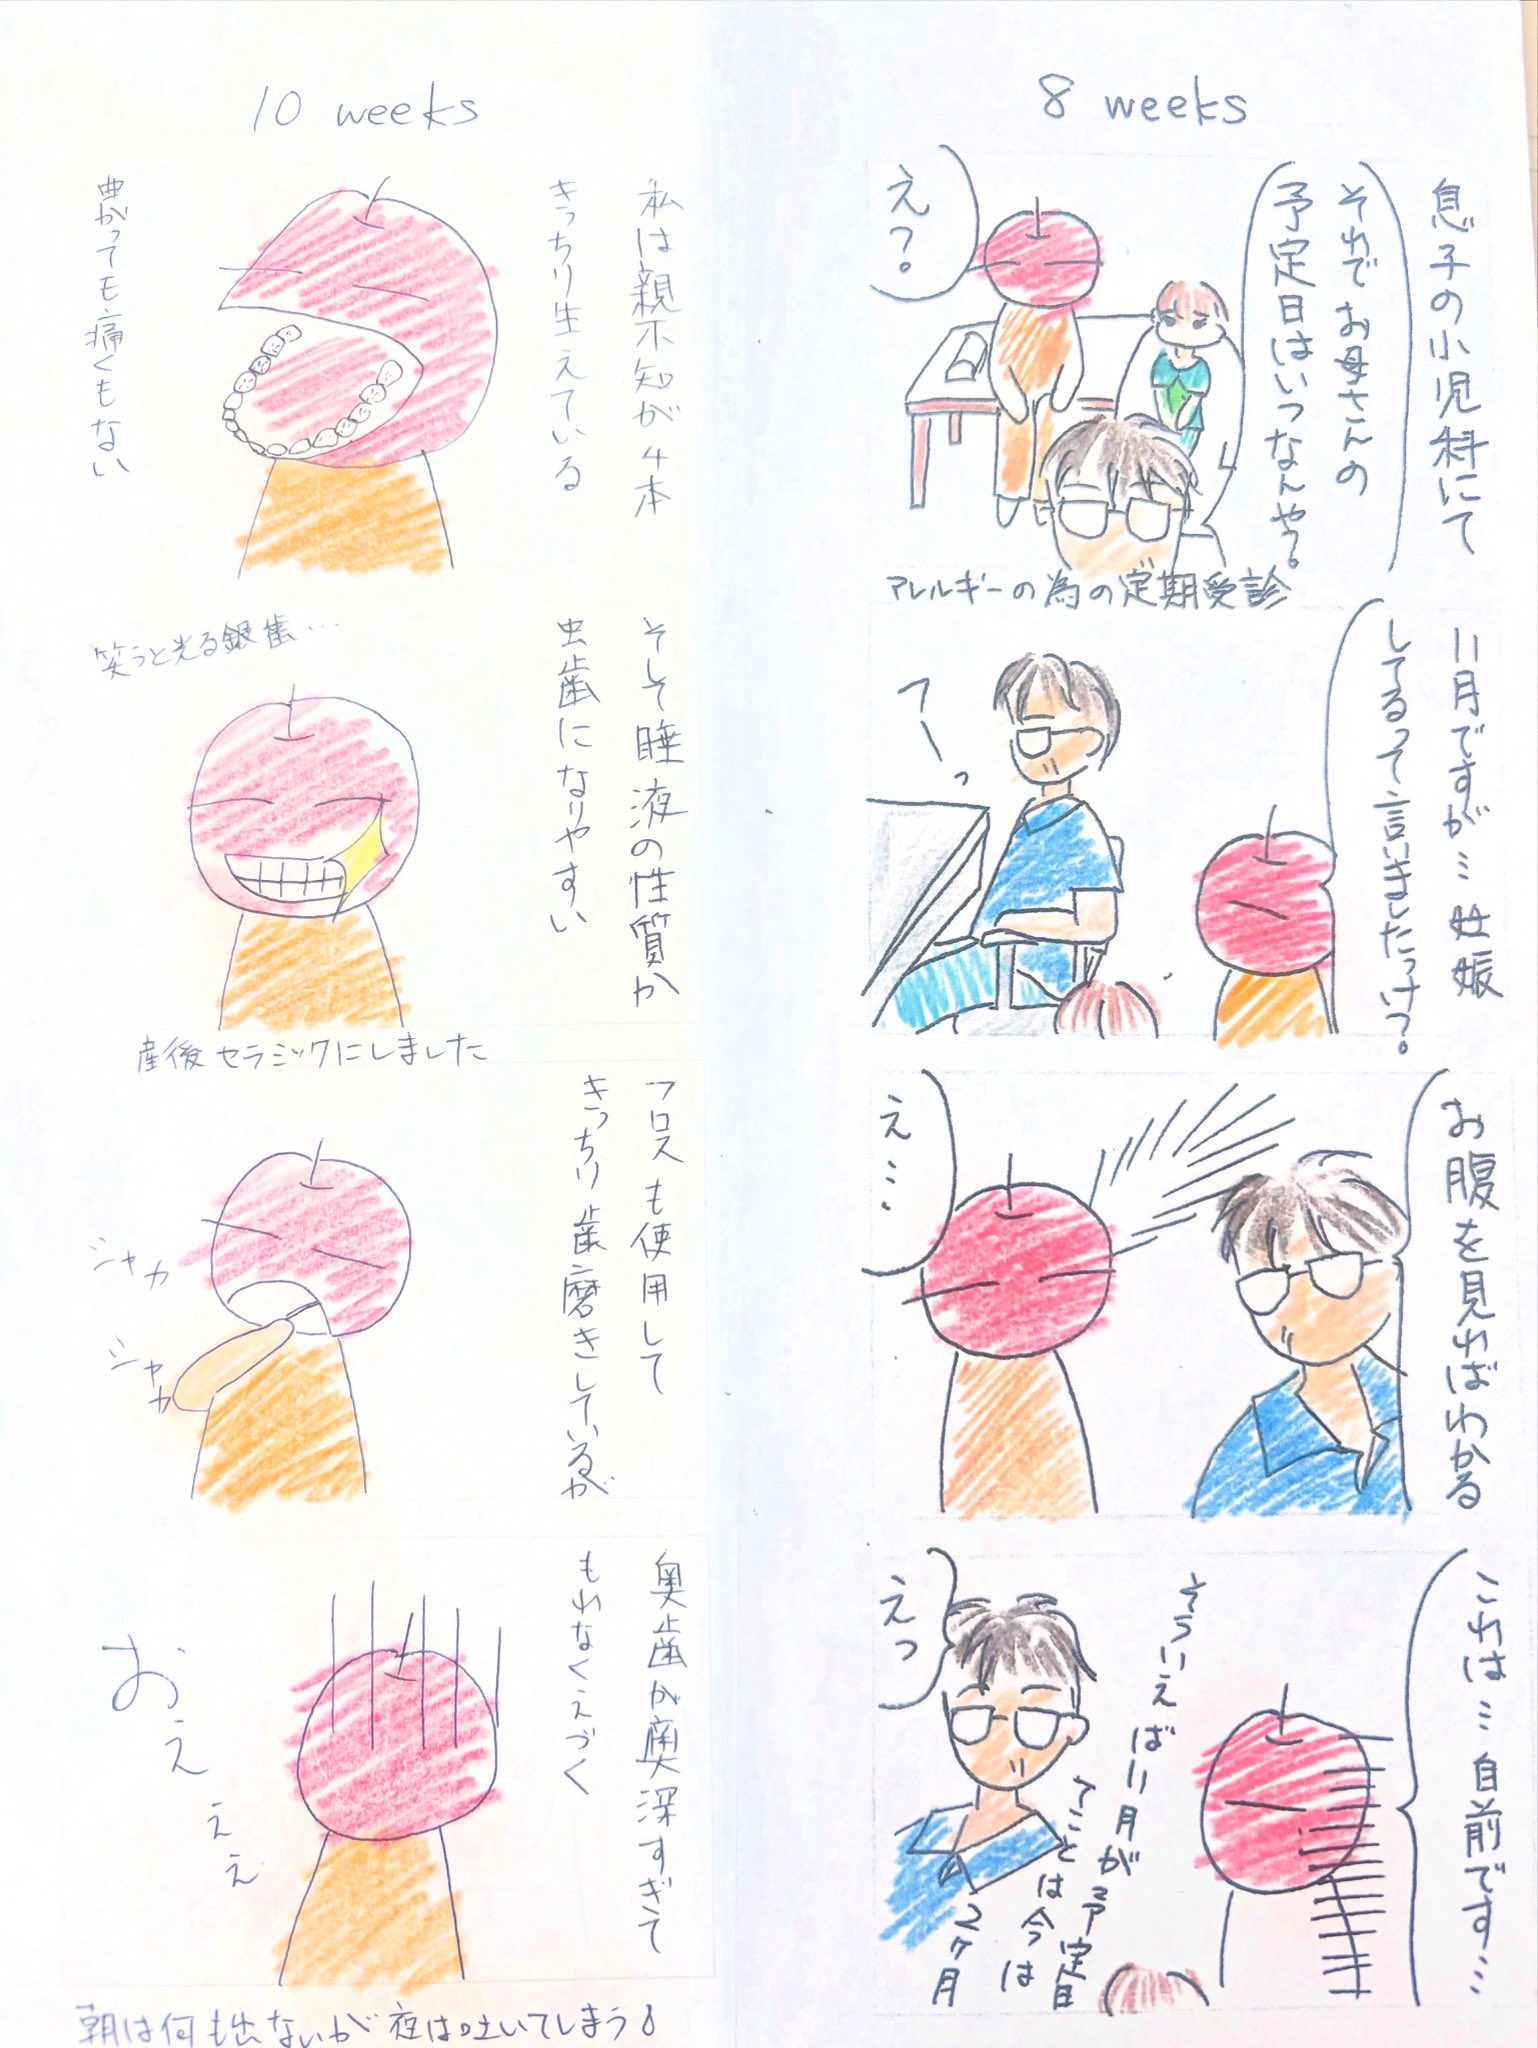 8 weeks
息子の小児科にて
それでお母さんの
予定日はいつなんや?。
え?。
アレルギーの為の定期受診
11月ですが…妊娠
してるって言いましたっけ?。
てーっ
お腹を見ればわかる
え…
これは…自前です…
そういえば11月が予定日
てことは今は
2ヶ月
えっ
10 weeks
私は親不知が4本
きっちり生えている
曲がっても痛くもない
そして唾液の性質か
虫歯になりやすい
笑うと光る銀歯…
産後セラミックにしました
フロスも使用して
きっちり歯磨きしているが
シャカ
シャカ
奥歯が奥深すぎて
もれなくえづく
おえぇぇ
朝は何も出ないが夜は吐いてしまう